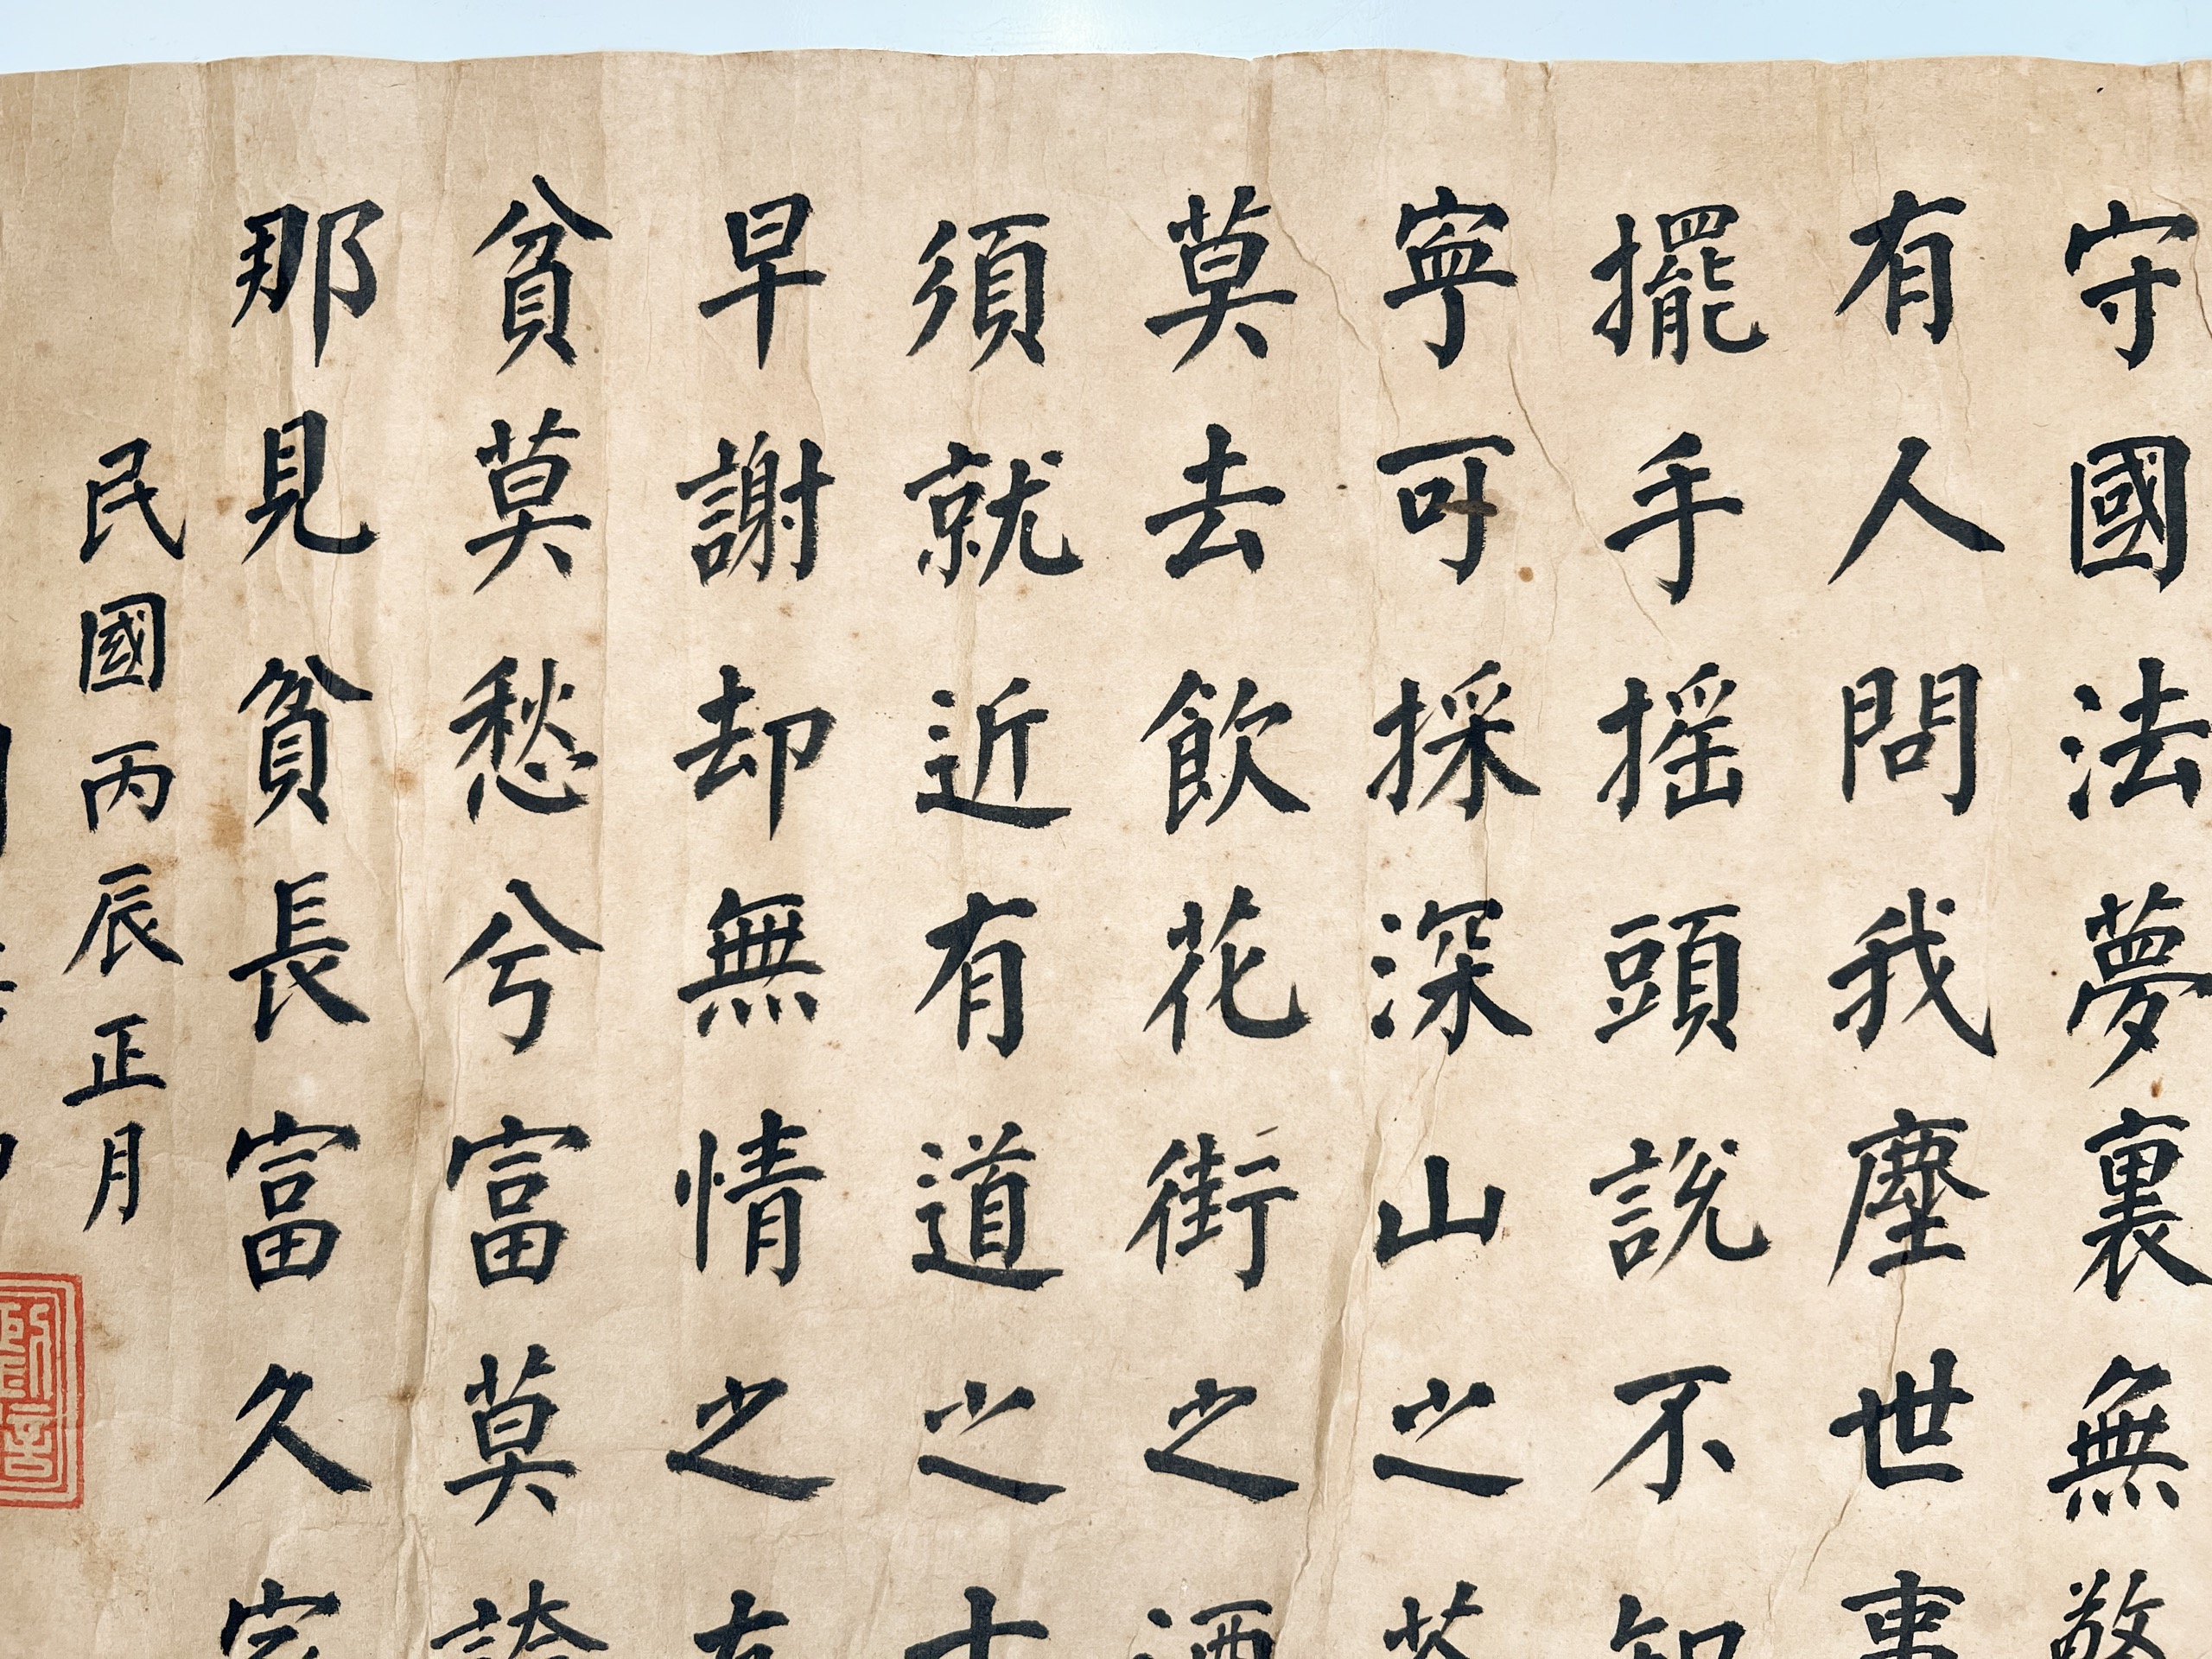 守國法夢裏無驚
有人問我塵世事
擺手搖頭説不知
寜可採深山之茶
莫去飲花街之酒
須就近有道之士
早謝却無情之友
貧莫愁兮富莫誇
那見貧長富久家
民國丙辰正月